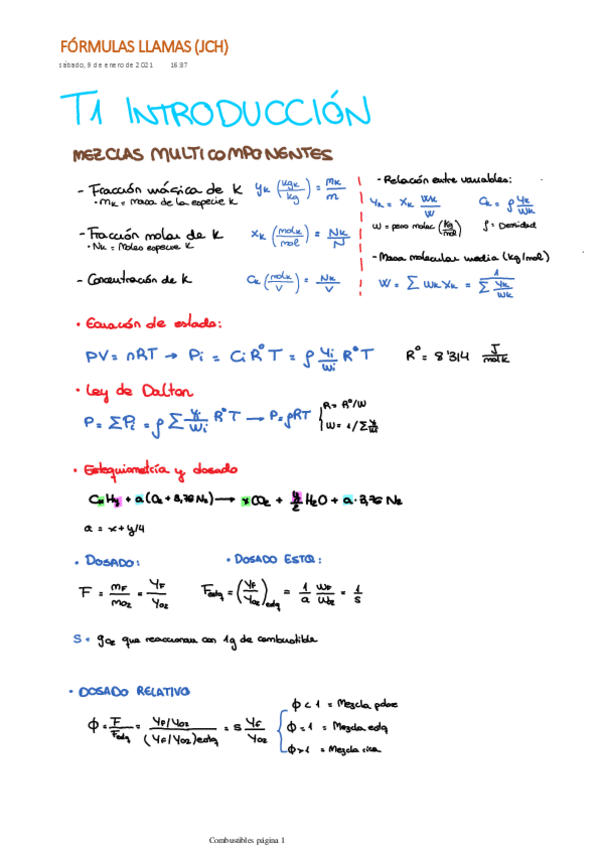 FÓRMULAS LLAMAS (JCH)
sábado, 9 de enero de 2021 16:37
T1 INTRODUCCIÓN
MEZCLAS MULTICOMPONENTES
- Fracción másica de K YK (kgK/kg) = mK/m
• mK = masa de la especie K
- Fracción molar de K XK (molK/mol) = NK/N
• NK = Moles especie K
- Concentración de K CK (molK/V) = NK/V
- Relación entre variables:
YK = XK WK/W CK = ρ YK/WK
W = peso molec (kg/mol) ρ = Densidad
- Masa molecular media (kg/mol)
W = Σ WK XK = 1/(Σ YK/WK)
• Ecuación de estado:
PV = nRT → Pi = Ci R° T = ρ Yi/Wi R° T R° = 8'314 J/molK
• Ley de Dalton
P = ΣPi = ρ Σ Yi/Wi R° T → P = ρRT
R = R°/W
W = 1/Σ Yi/Wi
• Estequiometría y dosado
CxHy + a(O2 + 3,76 N2) → xCO2 + y/2 H2O + a·3,76 N2
a = x + y/4
• DOSADO:
F = mF/mO2 = YF/YO2
• DOSADO ESTQ:
Festq = (YF/YO2)estq = 1/a WF/WO2 = 1/s
S = gO2 que reaccionan con 1g de combustible
• DOSADO RELATIVO
Φ = F/Festq = (YF/YO2)/(YF/YO2)estq = S YF/YO2
Φ < 1 = Mezcla pobre
Φ = 1 = Mezcla estq
Φ > 1 = Mezcla rica
Combustibles página 1